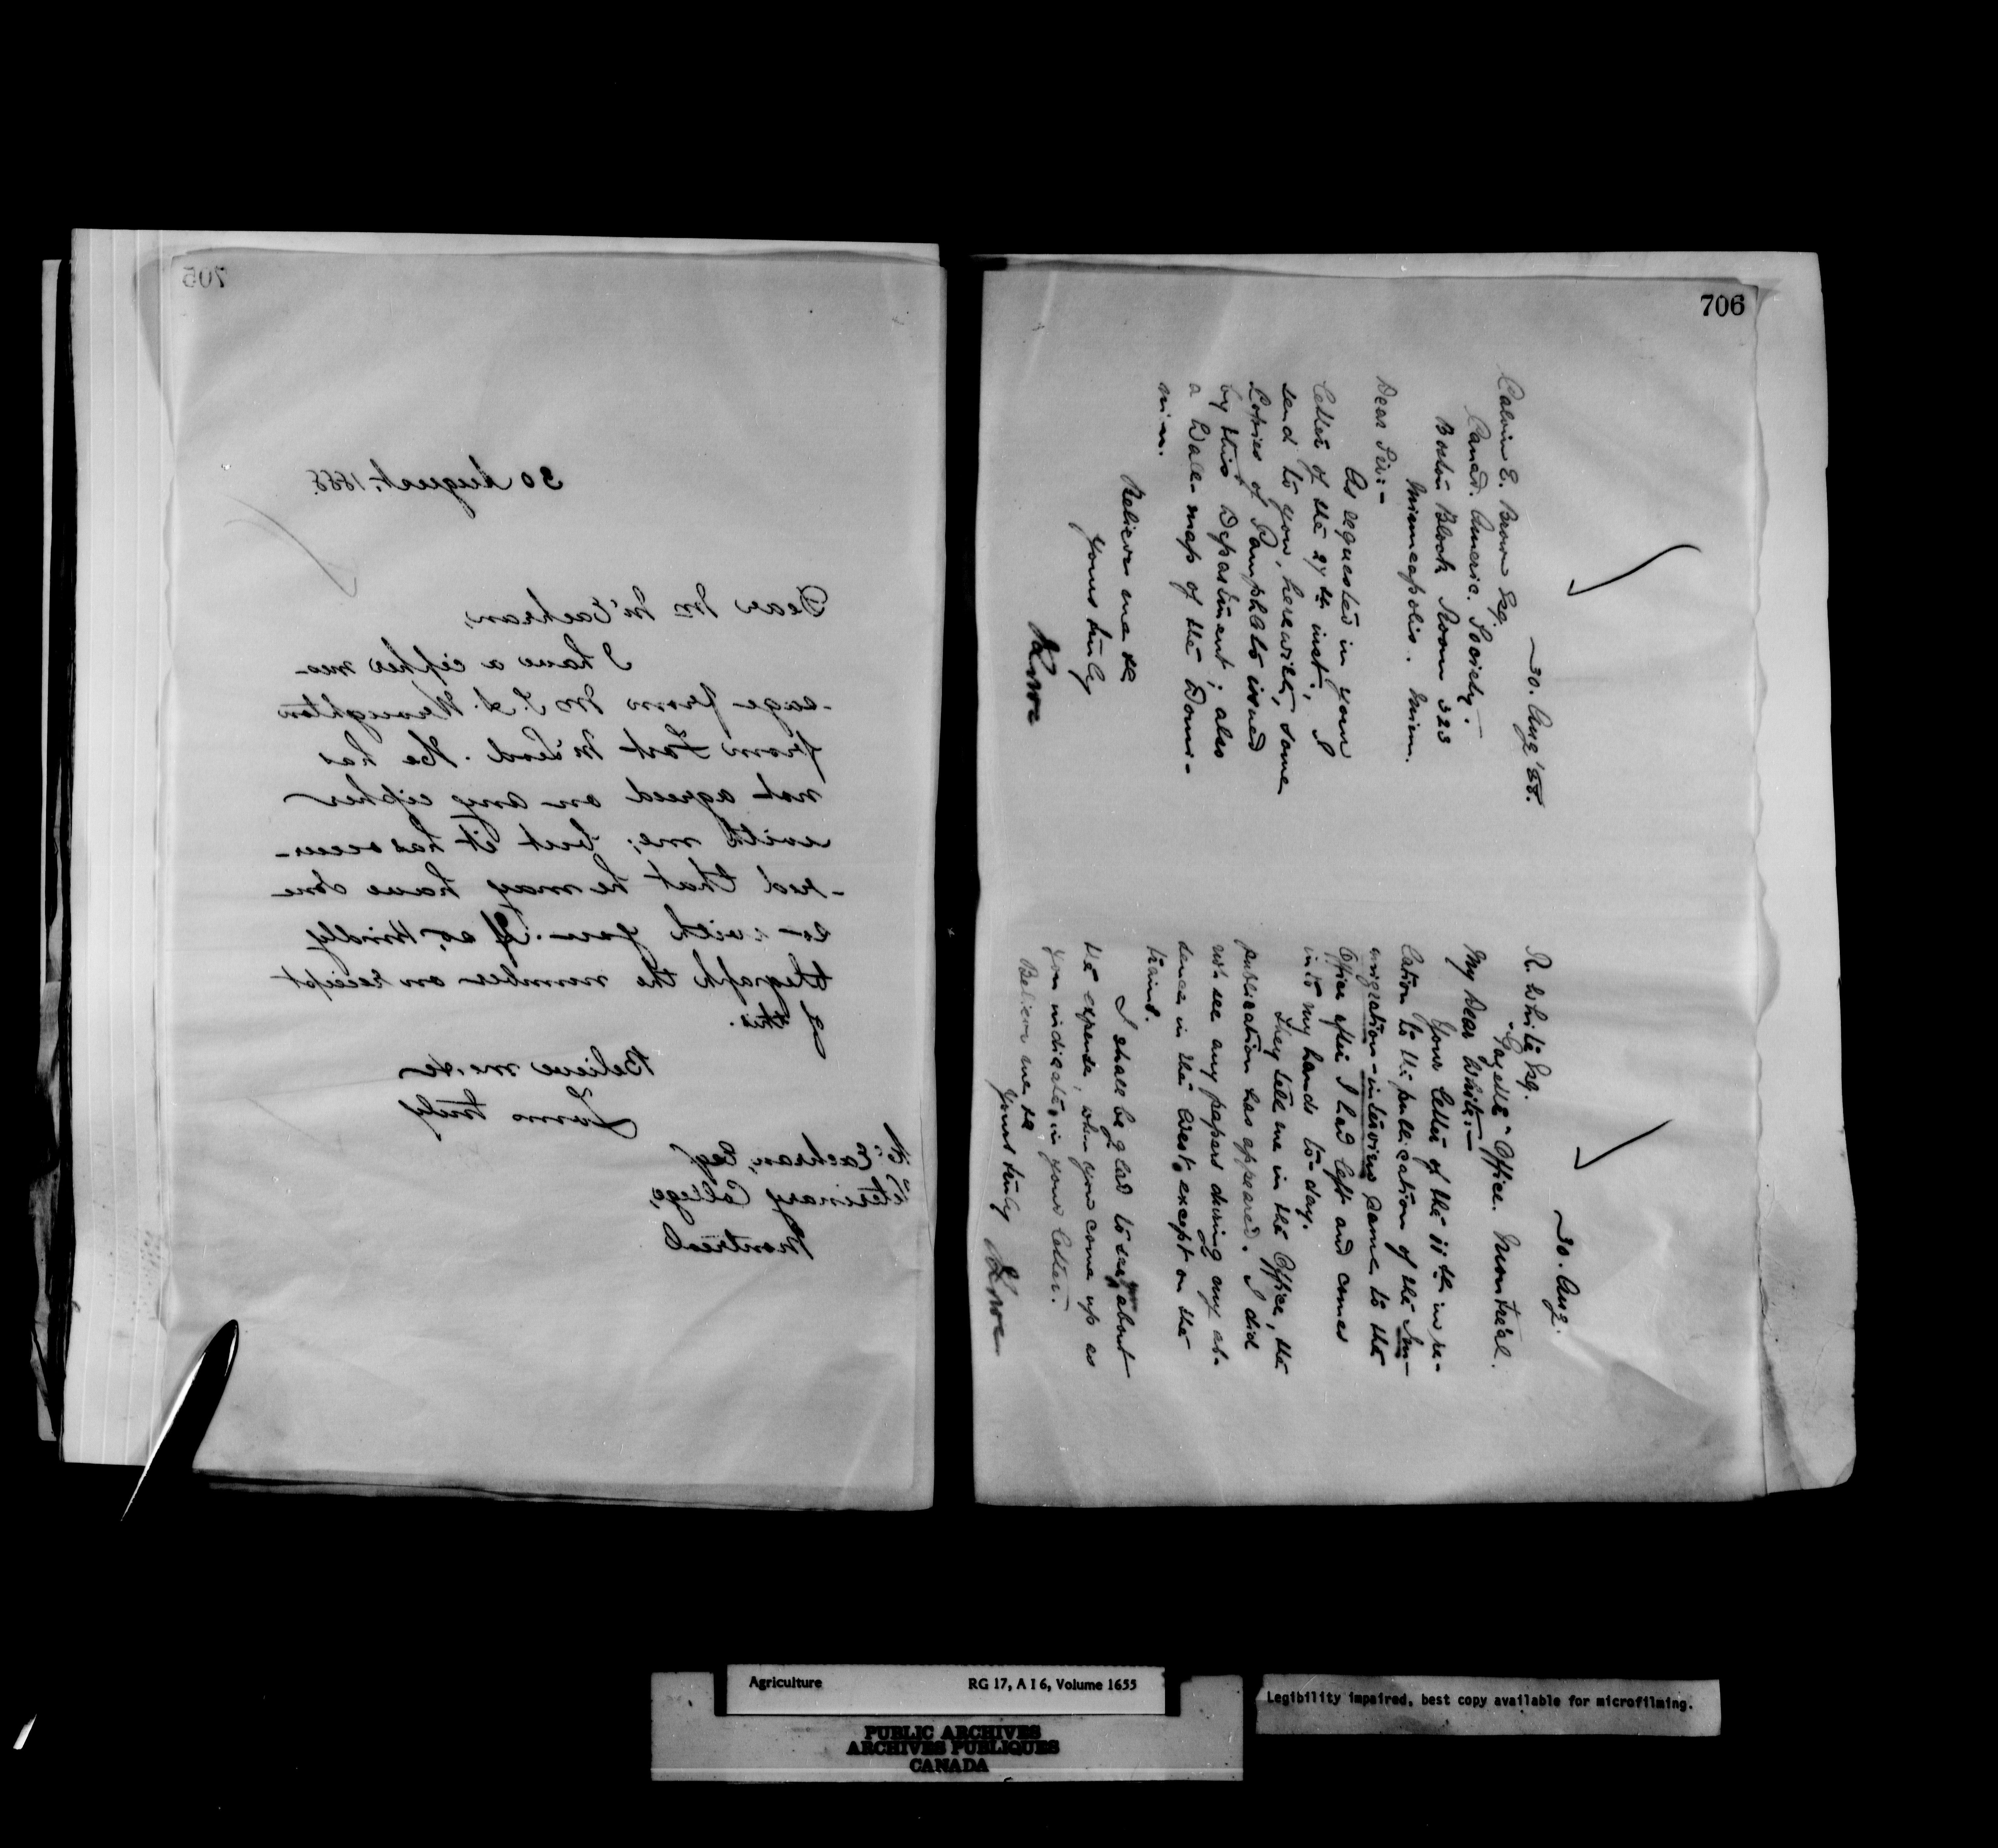 705
30 August, 1888.
Dear Mr McEachran,
I have a cipher mes-
-sage from Mr
from Fort McLeod. He has
not agreed on any cipher
with me; but it has occur-
-red that he may have done
so with you. If so, kindly
telegraph the number on receipt
of this.
Believe me
Yours truly
McEachran, Esq
Veterinary College,
Montreal
706
30. Aug '88.
Calvin E. Brown Esq.
Canad. Americ. Society.
Boston Block Room 323
Minneapolis. Minn.
Dear Sir:-
As requested in your
letter of the 27th inst., I
send to you, herewith, some
Copies of Pamphlets issued
by this Department; also
a Wall-map of the Domi-
nion.
Believe me
yours truly
Lowe
30. Aug.
R. White Esq.
"Gazette" Office. Montreal.
My Dear White:-
Your letter of the 11th in re-
lation to the publication of the Im-
migration-interviews came to the
Office after I had left and comes
into my hands to-day.
They tell me in the Office, the
publication has appeared. I did
not see any papers during my ab-
sence in the West, except on the
trains.
I shall be glad to see you about
the expense, when you come up as
you indicate, in your letter.
Believe me
yours truly
Lowe
Agriculture RG 17, A I 6, Volume 1655
PUBLIC ARCHIVES
ARCHIVES PUBLIQUES
CANADA
Legibility impaired, best copy available for microfilming.